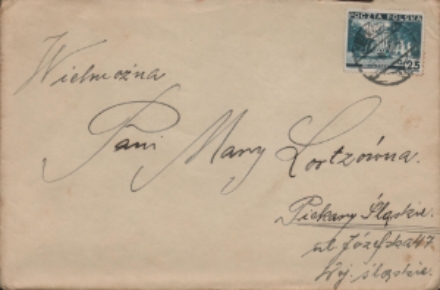 POCZTA POLSKA
25
Wielmożna
Pani Mary Lortzówna.
Piekary Śląskie.
ul. Józefska 47.
Woj. śląskie.